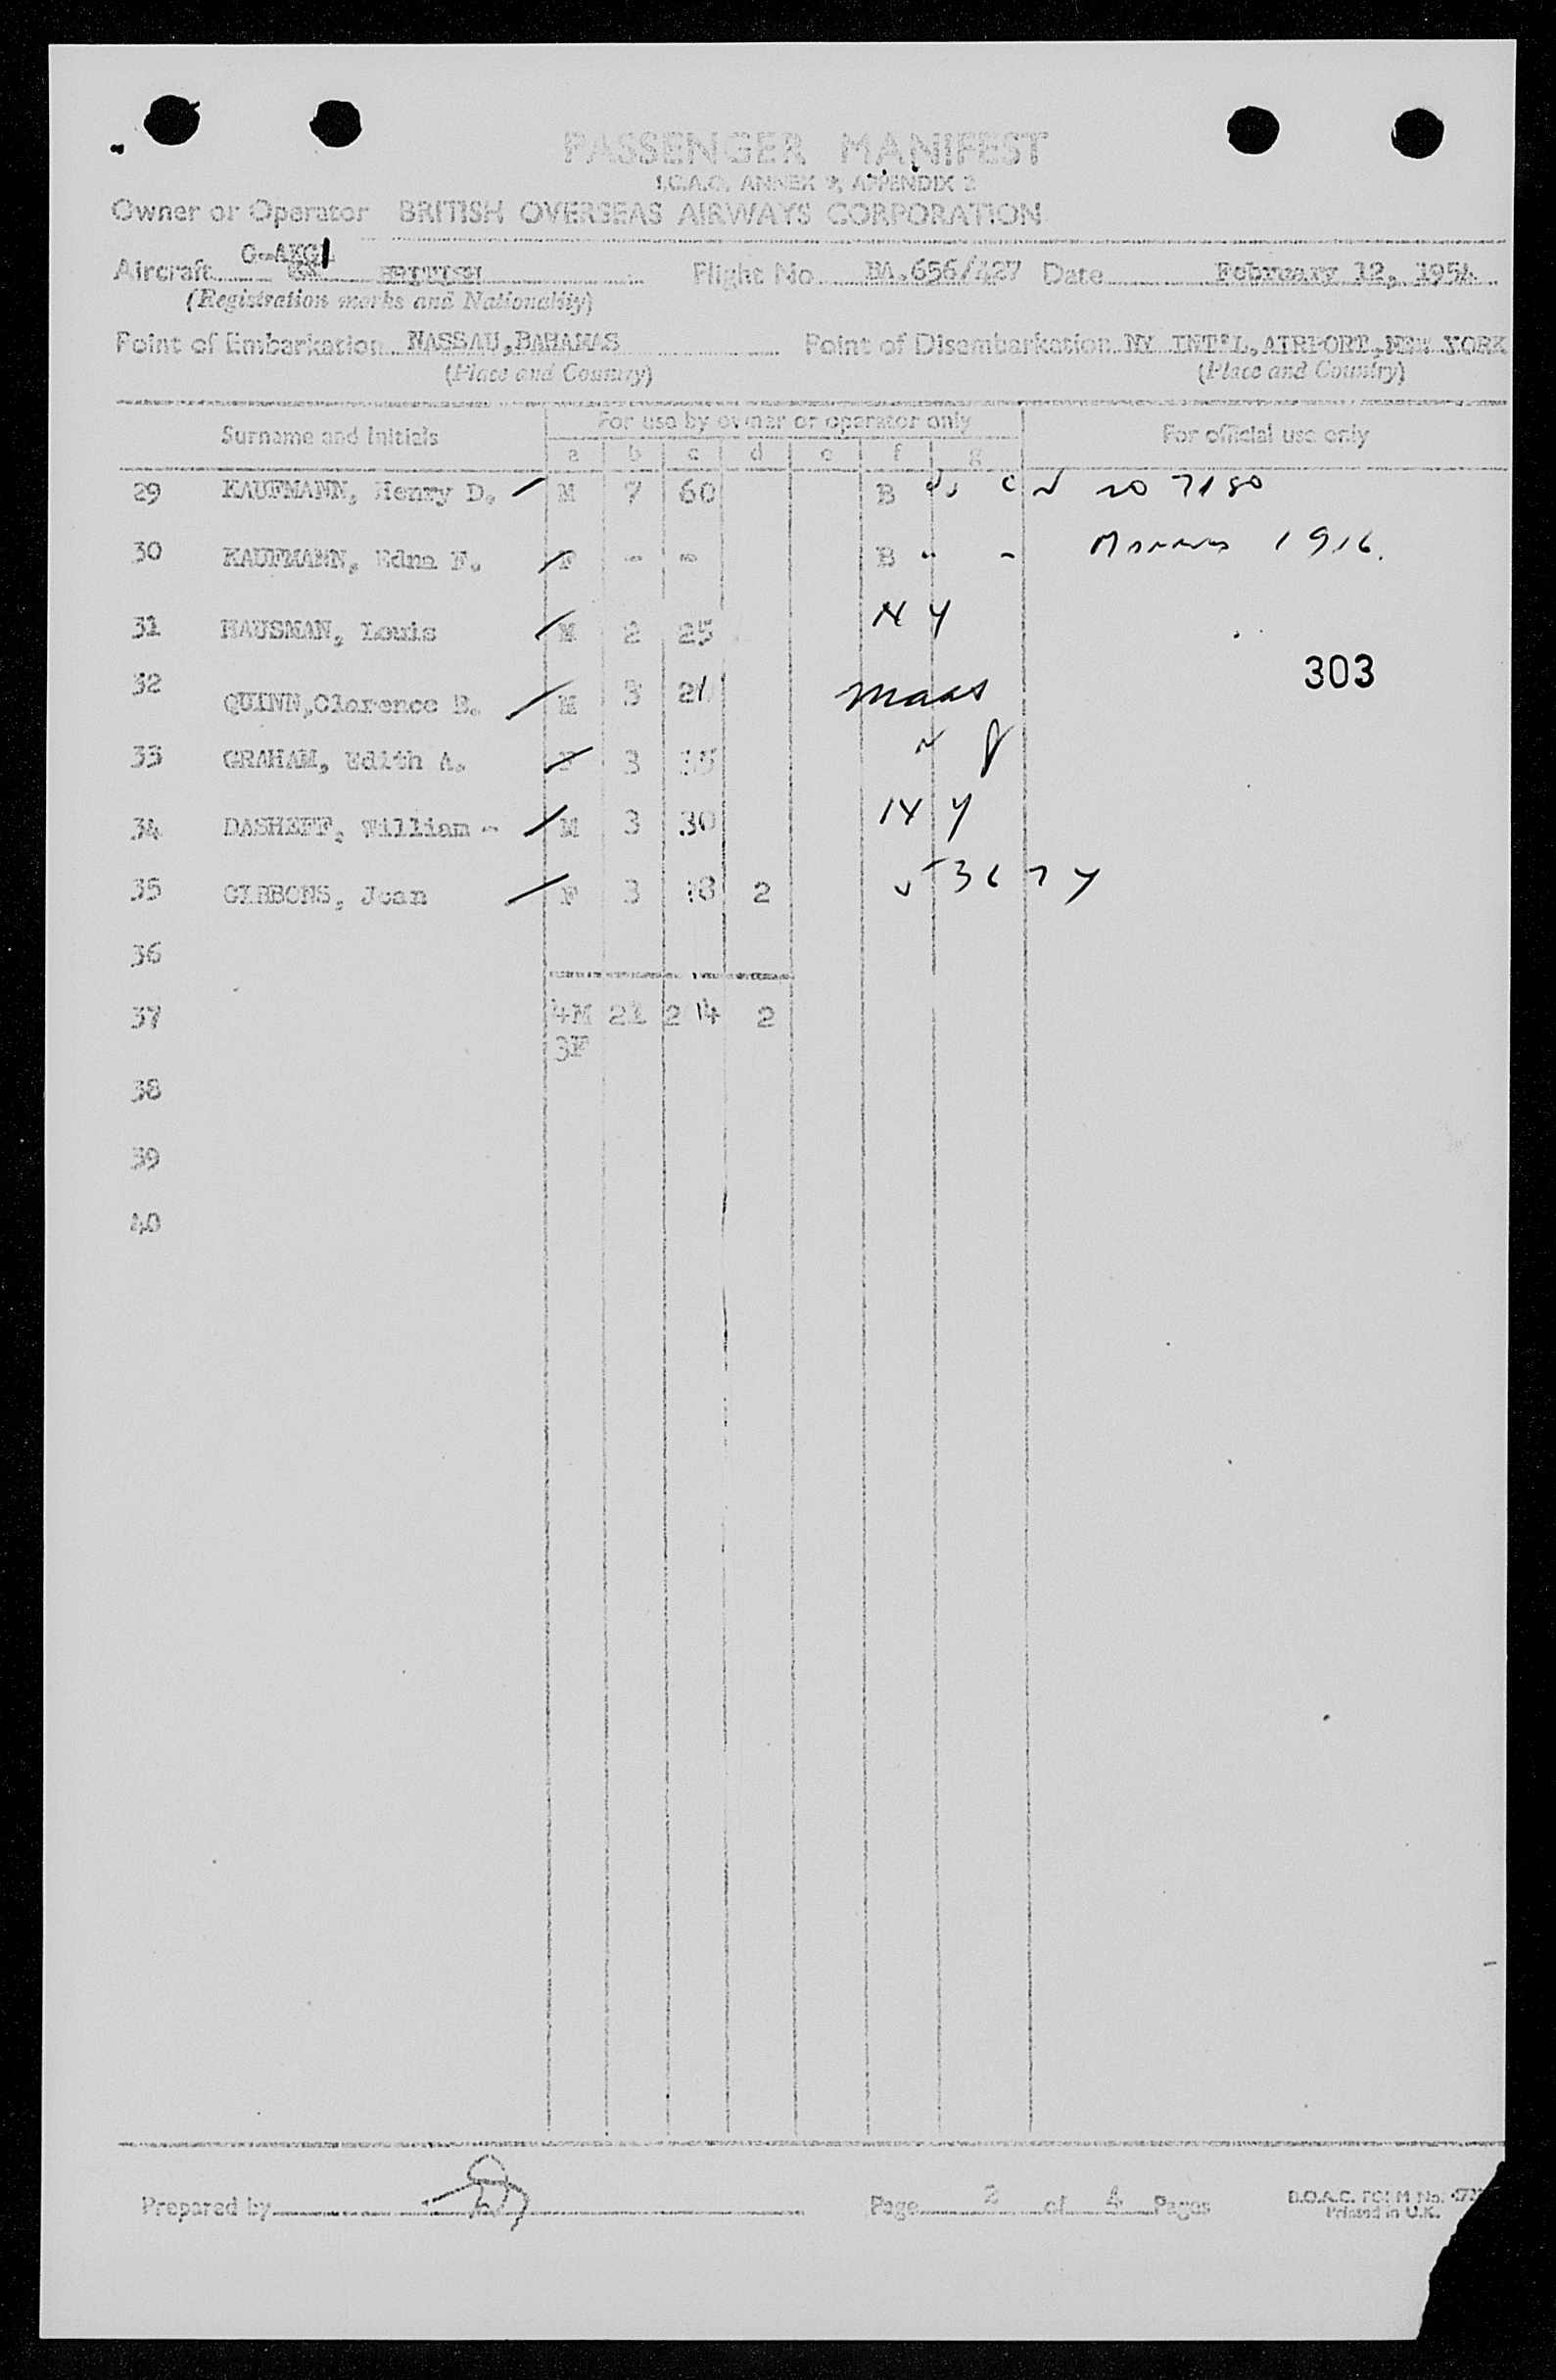 PASSENGER MANIFEST
I.C.A.O. ANNEX 9, APPENDIX 2
Owner or Operator BRITISH OVERSEAS AIRWAYS CORPORATION
Aircraft BRITISH Flight No. BA.656/427 Date February 12, 1954
(Registration marks and Nationality)
Point of Embarkation NASSAU,BAHAMAS Point of Disembarkation NY INT'L,AIRPORT,NEW YORK
(Place and Country) (Place and Country)
Surname and Initials For use by owner or operator only For official use only
a b c d e f g
29 KAUFMANN, Henry D. M 7 60 B no 7180
30 KAUFMANN, Edna F. F - - B " - 1916.
31 HAUSMAN, Louis M 2 25 N Y
303
32 QUINN,Clarence E. M 3 21 mass
33 GRAHAM, Edith A. F 3 35
34 DASHEFF, William - M 3 30 N Y
35 GIBBONS, Joan F 3 18 2
36
37 4M 21 214 2
3F
38
39
40
Prepared by Page 2 of 4 Pages B.O.A.C. FORM No.
Printed in U.K.